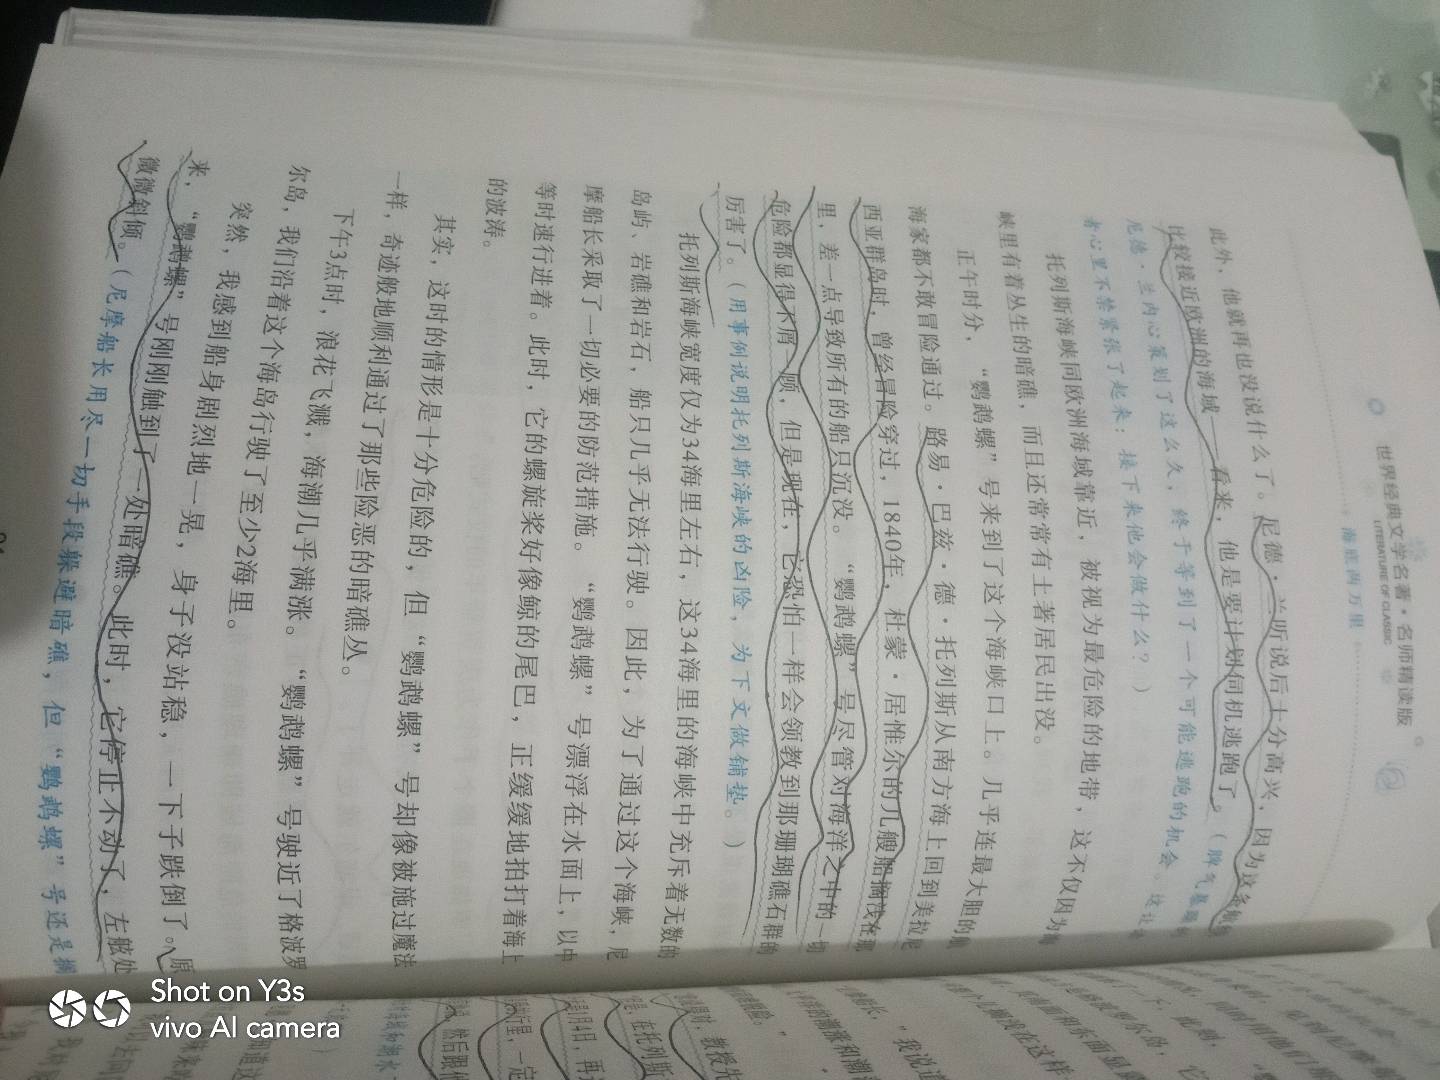 世界经典文学名著·名师精读版
LITERATURE OF CLASSIC
海底两万里
此外，他就再也没说什么了。尼德·兰听说后十分高兴，因为这条航
比较接近欧洲的海域——看来，他是要计划伺机逃跑了。（脾气暴躁的
尼德·兰内心策划了这么久，终于等到了一个可能逃跑的机会。这让
者心里不禁紧张了起来：接下来他会做什么？）
托列斯海峡同欧洲海域靠近，被视为最危险的地带，这不仅因为海
峡里有着丛生的暗礁，而且还常常有土著居民出没。
正午时分，“鹦鹉螺”号来到了这个海峡口上。几乎连最大胆的
海家都不敢冒险通过。路易·巴兹·德·托列斯从南方海上回到美拉尼
西亚群岛时，曾经冒险穿过，1840年，杜蒙·居惟尔的几艘船搁浅在那
里，差一点导致所有的船只沉没。“鹦鹉螺”号尽管对海洋之中的一切
危险都显得不屑一顾，但是现在，它恐怕一样会领教到那珊瑚礁石群的
厉害了。（用事例说明托列斯海峡的凶险，为下文做铺垫。）
托列斯海峡宽度仅为34海里左右，这34海里的海峡中充斥着无数的
岛屿、岩礁和岩石，船只几乎无法行驶。因此，为了通过这个海峡，尼
摩船长采取了一切必要的防范措施。“鹦鹉螺”号漂浮在水面上，以中
等时速行进着。此时，它的螺旋桨好像鲸的尾巴，正缓缓地拍打着海上
的波涛。
其实，这时的情形是十分危险的，但“鹦鹉螺”号却像被施过魔法
一样，奇迹般地顺利通过了那些险恶的暗礁丛。
下午3点时，浪花飞溅，海潮几乎满涨。“鹦鹉螺”号驶近了格波罗
尔岛，我们沿着这个海岛行驶了至少2海里。
突然，我感到船身剧烈地一晃，身子没站稳，一下子跌倒了。原
来，“鹦鹉螺”号刚刚触到了一处暗礁。此时，它停止不动了，左舷处
微微斜倾。（尼摩船长用尽一切手段躲避暗礁，但“鹦鹉螺”号还是搁
Shot on Y3s
vivo AI camera